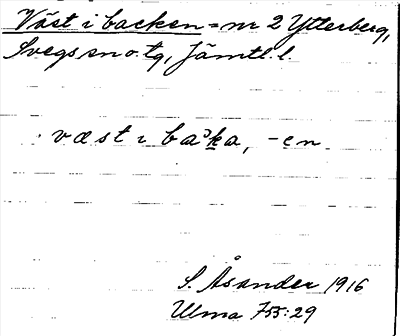 Väst i backen = nr 2 Ytterberg,
Svegs sn o. tg, Jämtl. l.
væst i ba²ka, -en
S. Åsander 1916
Ulma 755:29